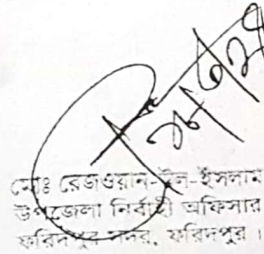 মোঃ রেজওয়ান-উল-ইসলাম
উপজেলা নির্বাহী অফিসার
ফরিদপুর সদর, ফরিদপুর।